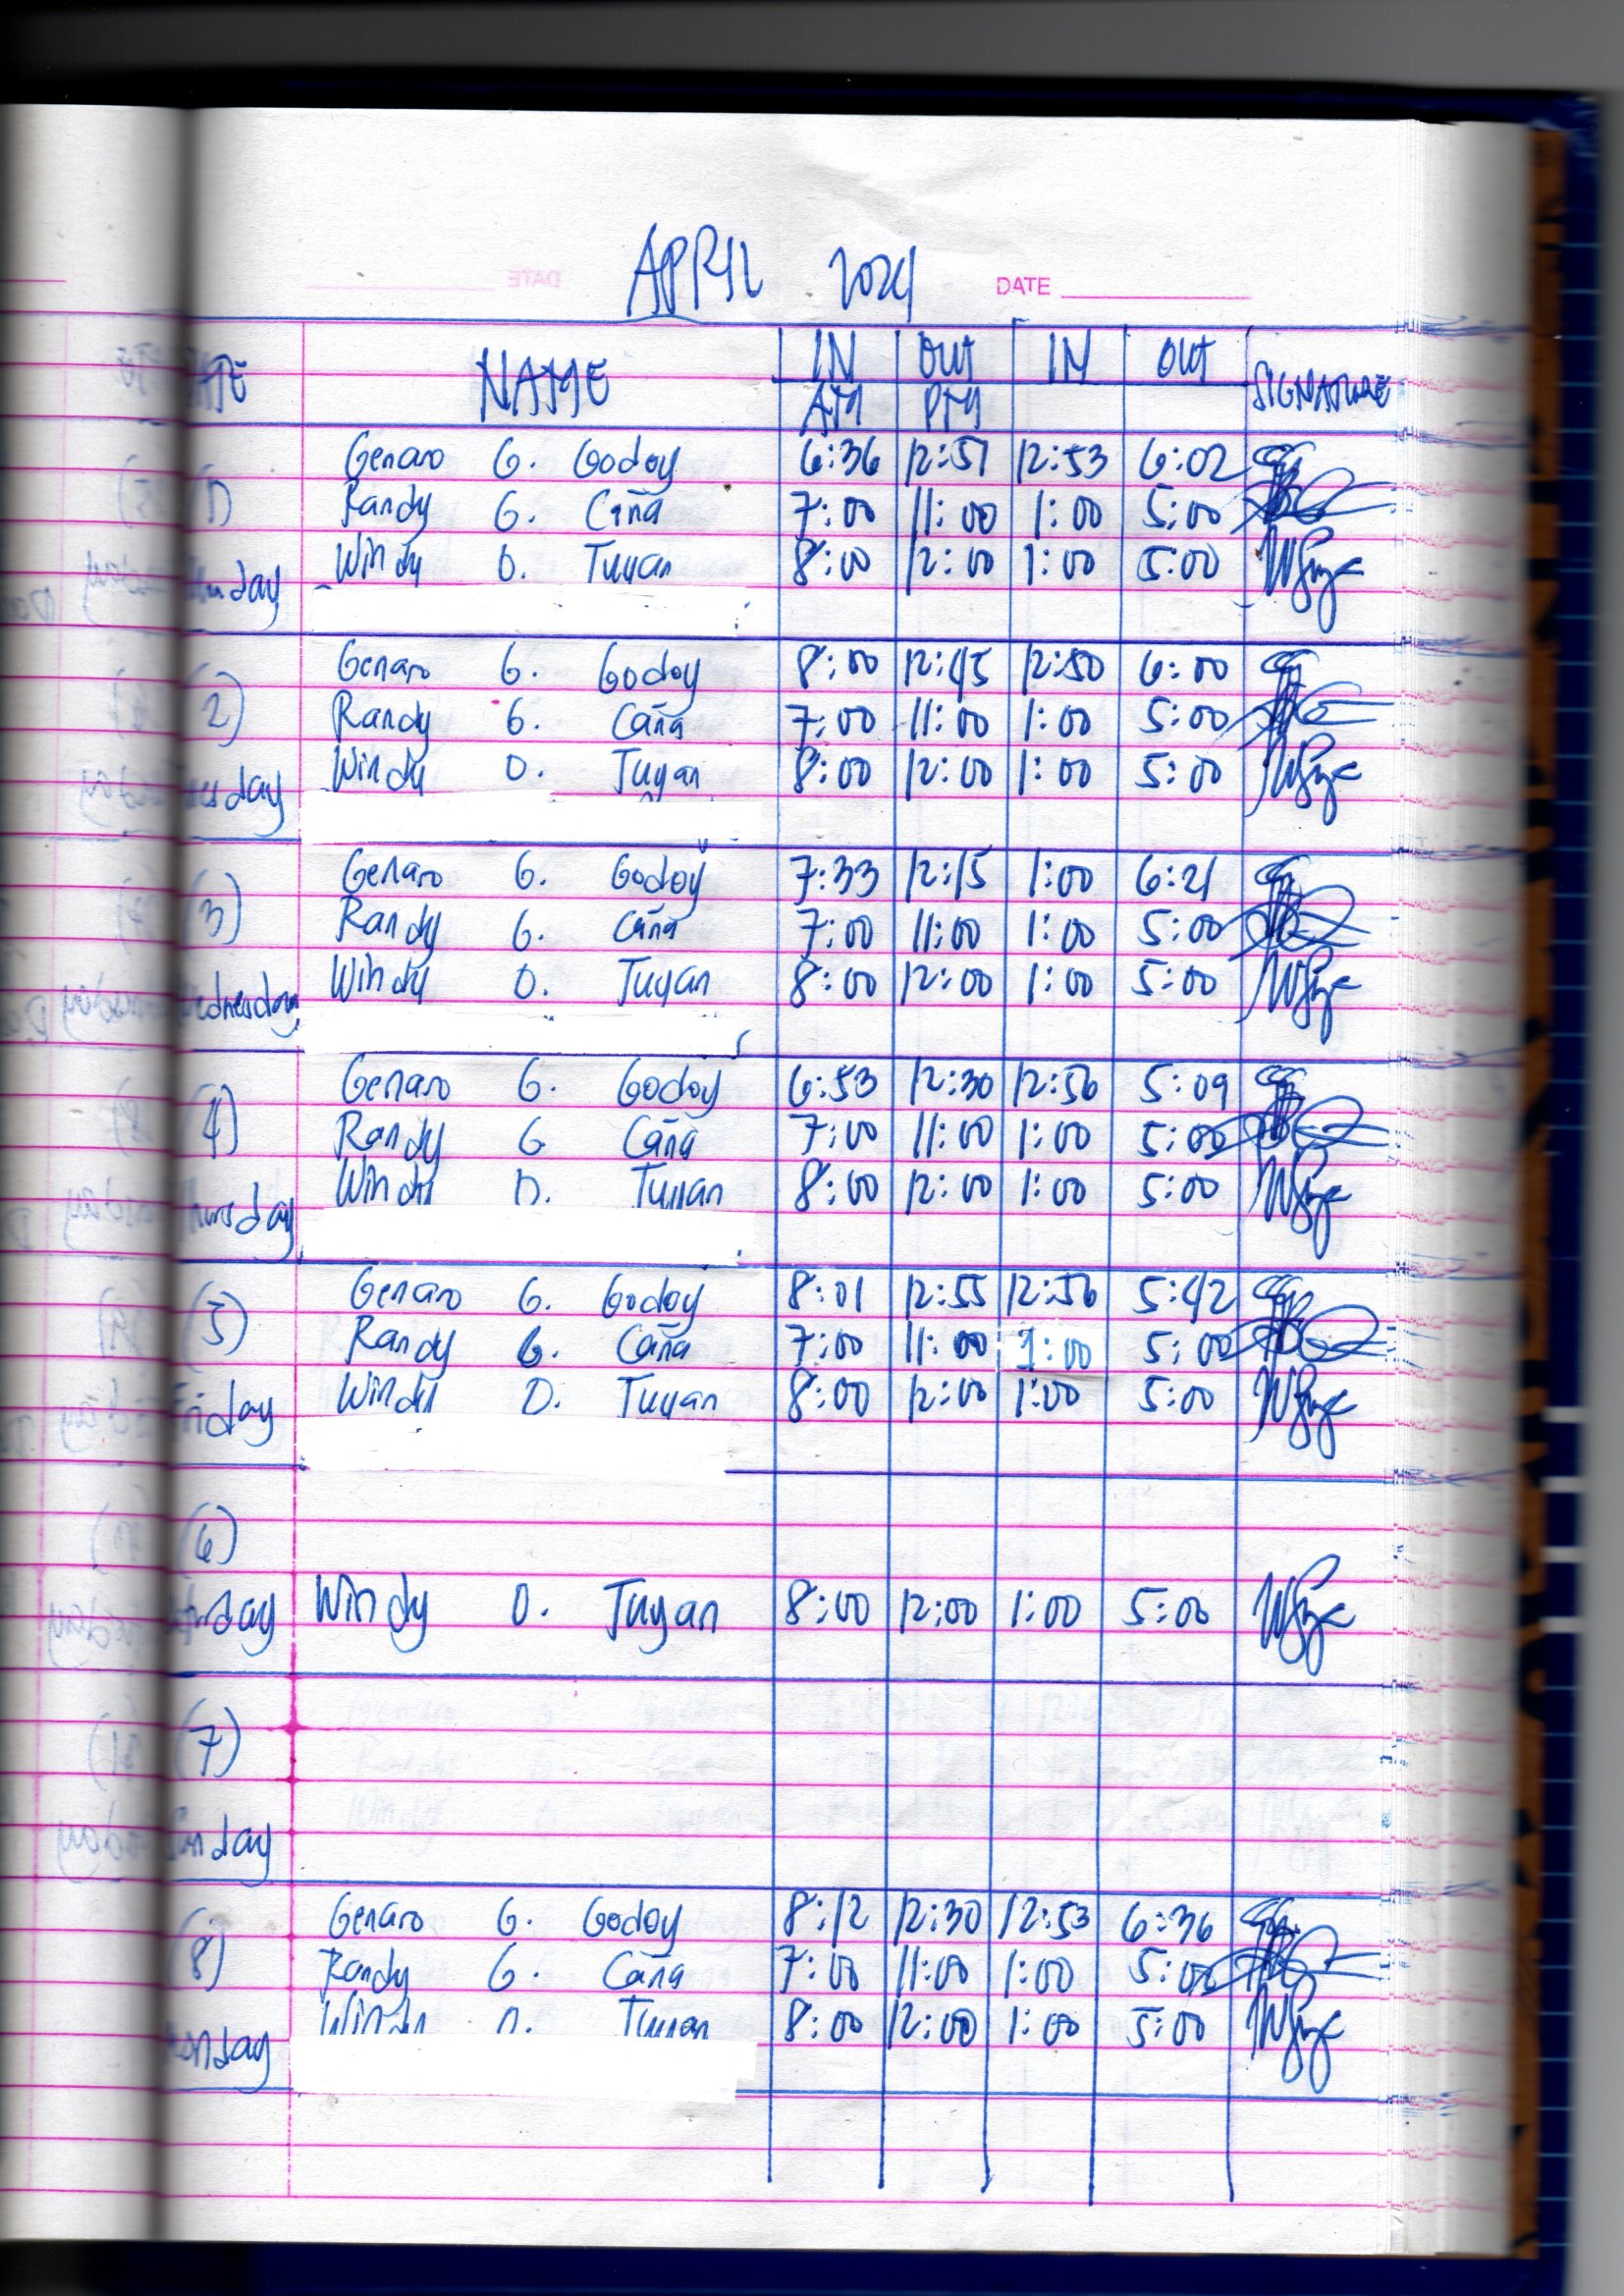 APRIL 2024 DATE
DATE NAME IN OUT IN OUT SIGNATURE
AM PM
(1) Genaro G. Godoy 6:36 12:51 12:53 6:02
Randy G. Caña 7:00 11:00 1:00 5:00
Monday Windy D. Tuyan 8:00 12:00 1:00 5:00
(2) Genaro G. Godoy 8:00 12:45 12:50 6:00
Randy G. Caña 7:00 11:00 1:00 5:00
Tuesday Windy D. Tuyan 8:00 12:00 1:00 5:00
(3) Genaro G. Godoy 7:33 12:15 1:00 6:21
Randy G. Caña 7:00 11:00 1:00 5:00
Wednesday Windy D. Tuyan 8:00 12:00 1:00 5:00
(4) Genaro G. Godoy 6:53 12:30 12:56 5:09
Randy G Caña 7:00 11:00 1:00 5:00
Thursday Windy D. Tuyan 8:00 12:00 1:00 5:00
(5) Genaro G. Godoy 8:01 12:55 12:56 5:42
Randy G. Caña 7:00 11:00 1:00 5:00
Friday Windy D. Tuyan 8:00 12:00 1:00 5:00
(6)
Windy D. Tuyan 8:00 12:00 1:00 5:00
(7)
Sunday
(8) Genaro G. Godoy 8:12 12:30 12:53 6:36
Randy G. Caña 7:00 11:00 1:00 5:00
Monday Windy D. Tuyan 8:00 12:00 1:00 5:00